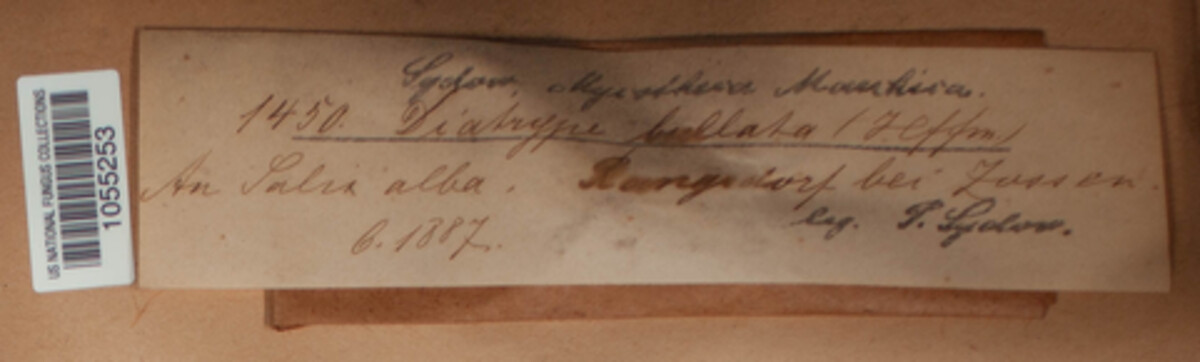 US NATIONAL FUNGUS COLLECTIONS
1055253
Sydow, Mycotheca Marchica.
1450. Diatrype bullata (Hffm)
An Salix alba. Rangsdorf bei Zossen.
6. 1887. leg. P. Sydow.